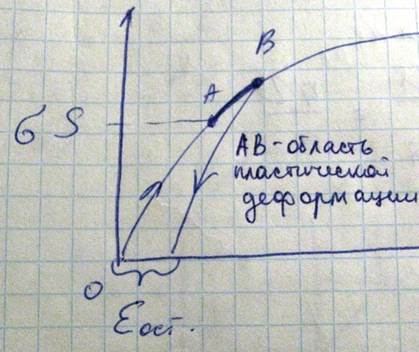 B
A
σ S
AB - область
пластической
деформации
O
Eост.